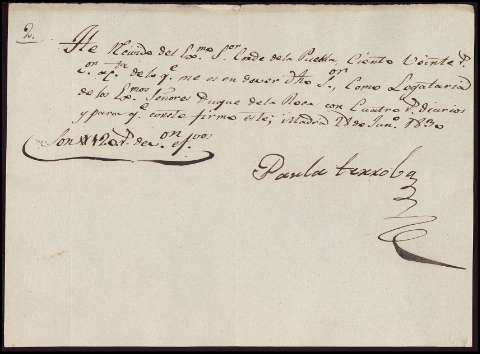 2.
He Recivido del Exmo. Sor. Conde de la Puebla, Ciento Veinte Rs.
Von. a qta. de lo qe. me es en dever dho. Sor., Como Legataria
de los Exmos. Señores Duque de la Roca con Cuatro Rs. diarios
y para qe. conste firmo este, Madrid 28 de Junº. 1830
Son 120 Rs. de Von. efvos.
Paula